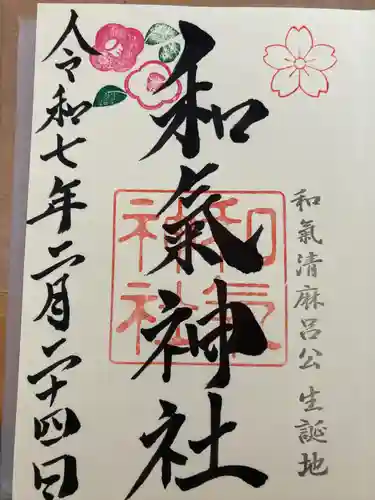 和氣清麻呂公生誕地
和氣神社
和氣神社
令和七年二月二十四日